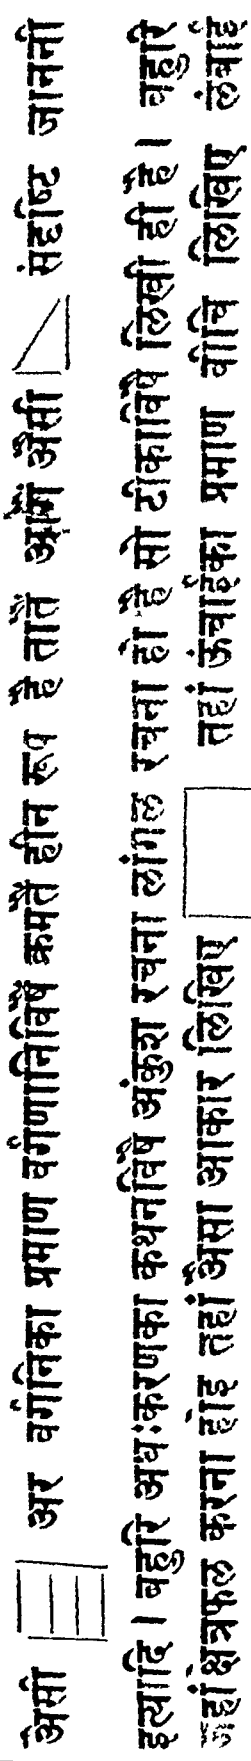 अैसी अर वर्गनिका प्रमाण वर्गणानिविषैं क्रमतैं हीन रूप है तातैं आगैं अैसी संदृष्टि जाननी
इत्यादि । बहुरि अधःकरणका कथनविषैं अंकुश रचना लांगल रचना हो है सो टीकाविषैं लिखी ही है । बहुरि
जहां क्षेत्रफल करना होइ तहां अैसा आकार लिखिए तहां ऊंचाईका प्रमाण वीचि लिखिए लंबाई